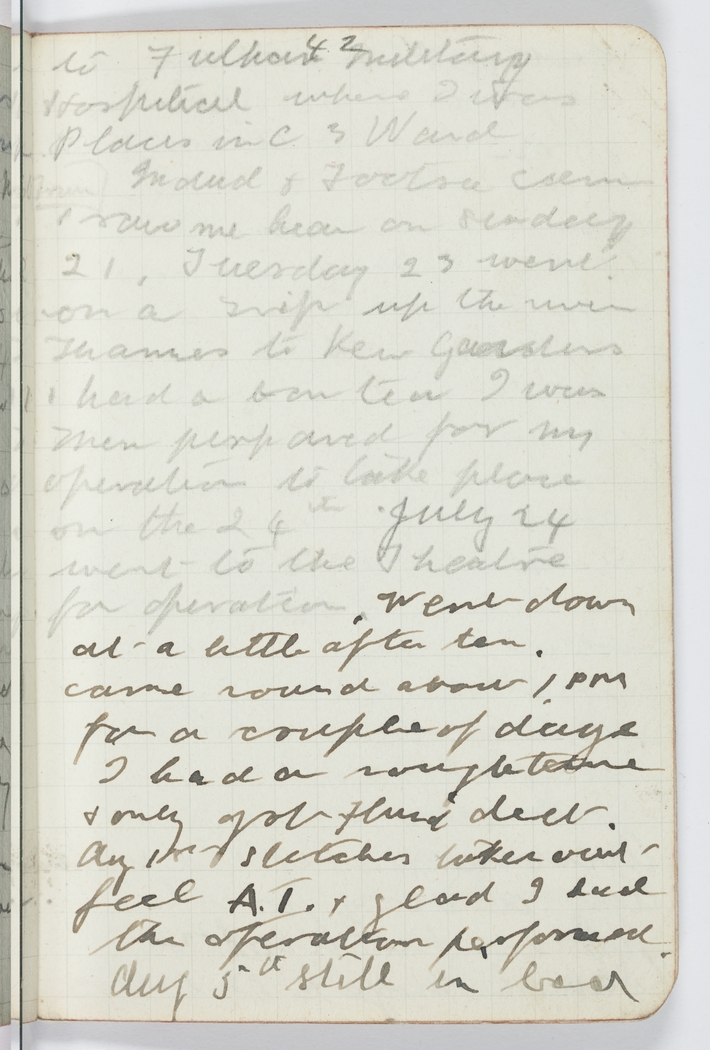 42
to Fulham Military
Hospital where I was
Places in C 3 Ward
Maud & Tootsie cam
& saw me hear on Sunday
21, Tuesday 23 went
on a trip up the river
Thames to Kew Gardens
& had a bon tea I was
then perpared for my
operation to take place
on the 24th July 24
went to the Theatre
for operation. Went down
at a little after ten.
came round about 1 PM
for a couple of days
I had a rough time
& only got fluid diet.
Aug 1st stitches taken out
feel A.1. & glad I had
the operation performed.
Aug 5th still in bed